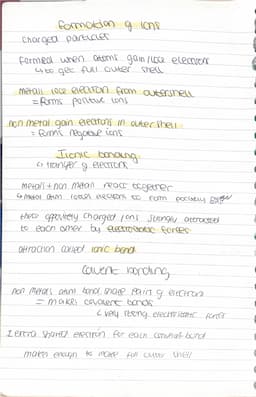 Formation of ions
Charged particles
Formed when atoms gain/lose electrons
↳ to get full outer shell
Metals lose electron from outershell
= forms positive ions
non metal gain electrons in outer shell
= forms negative ions
Ionic bonding
↳ transfer of electrons
Metals + non metals react together
↳ Metal atom loses electrons to form positively
these oppositely charged ions strongly attracted
to each other by electrostatic forces
attraction called ionic bond
Covalent bonding
non metals atom bond share pairs of electrons
= makes covalent bonds
↳ very strong electrostatic forces
1 extra shared electron for each covalent bond
makes enough to make full outer shell